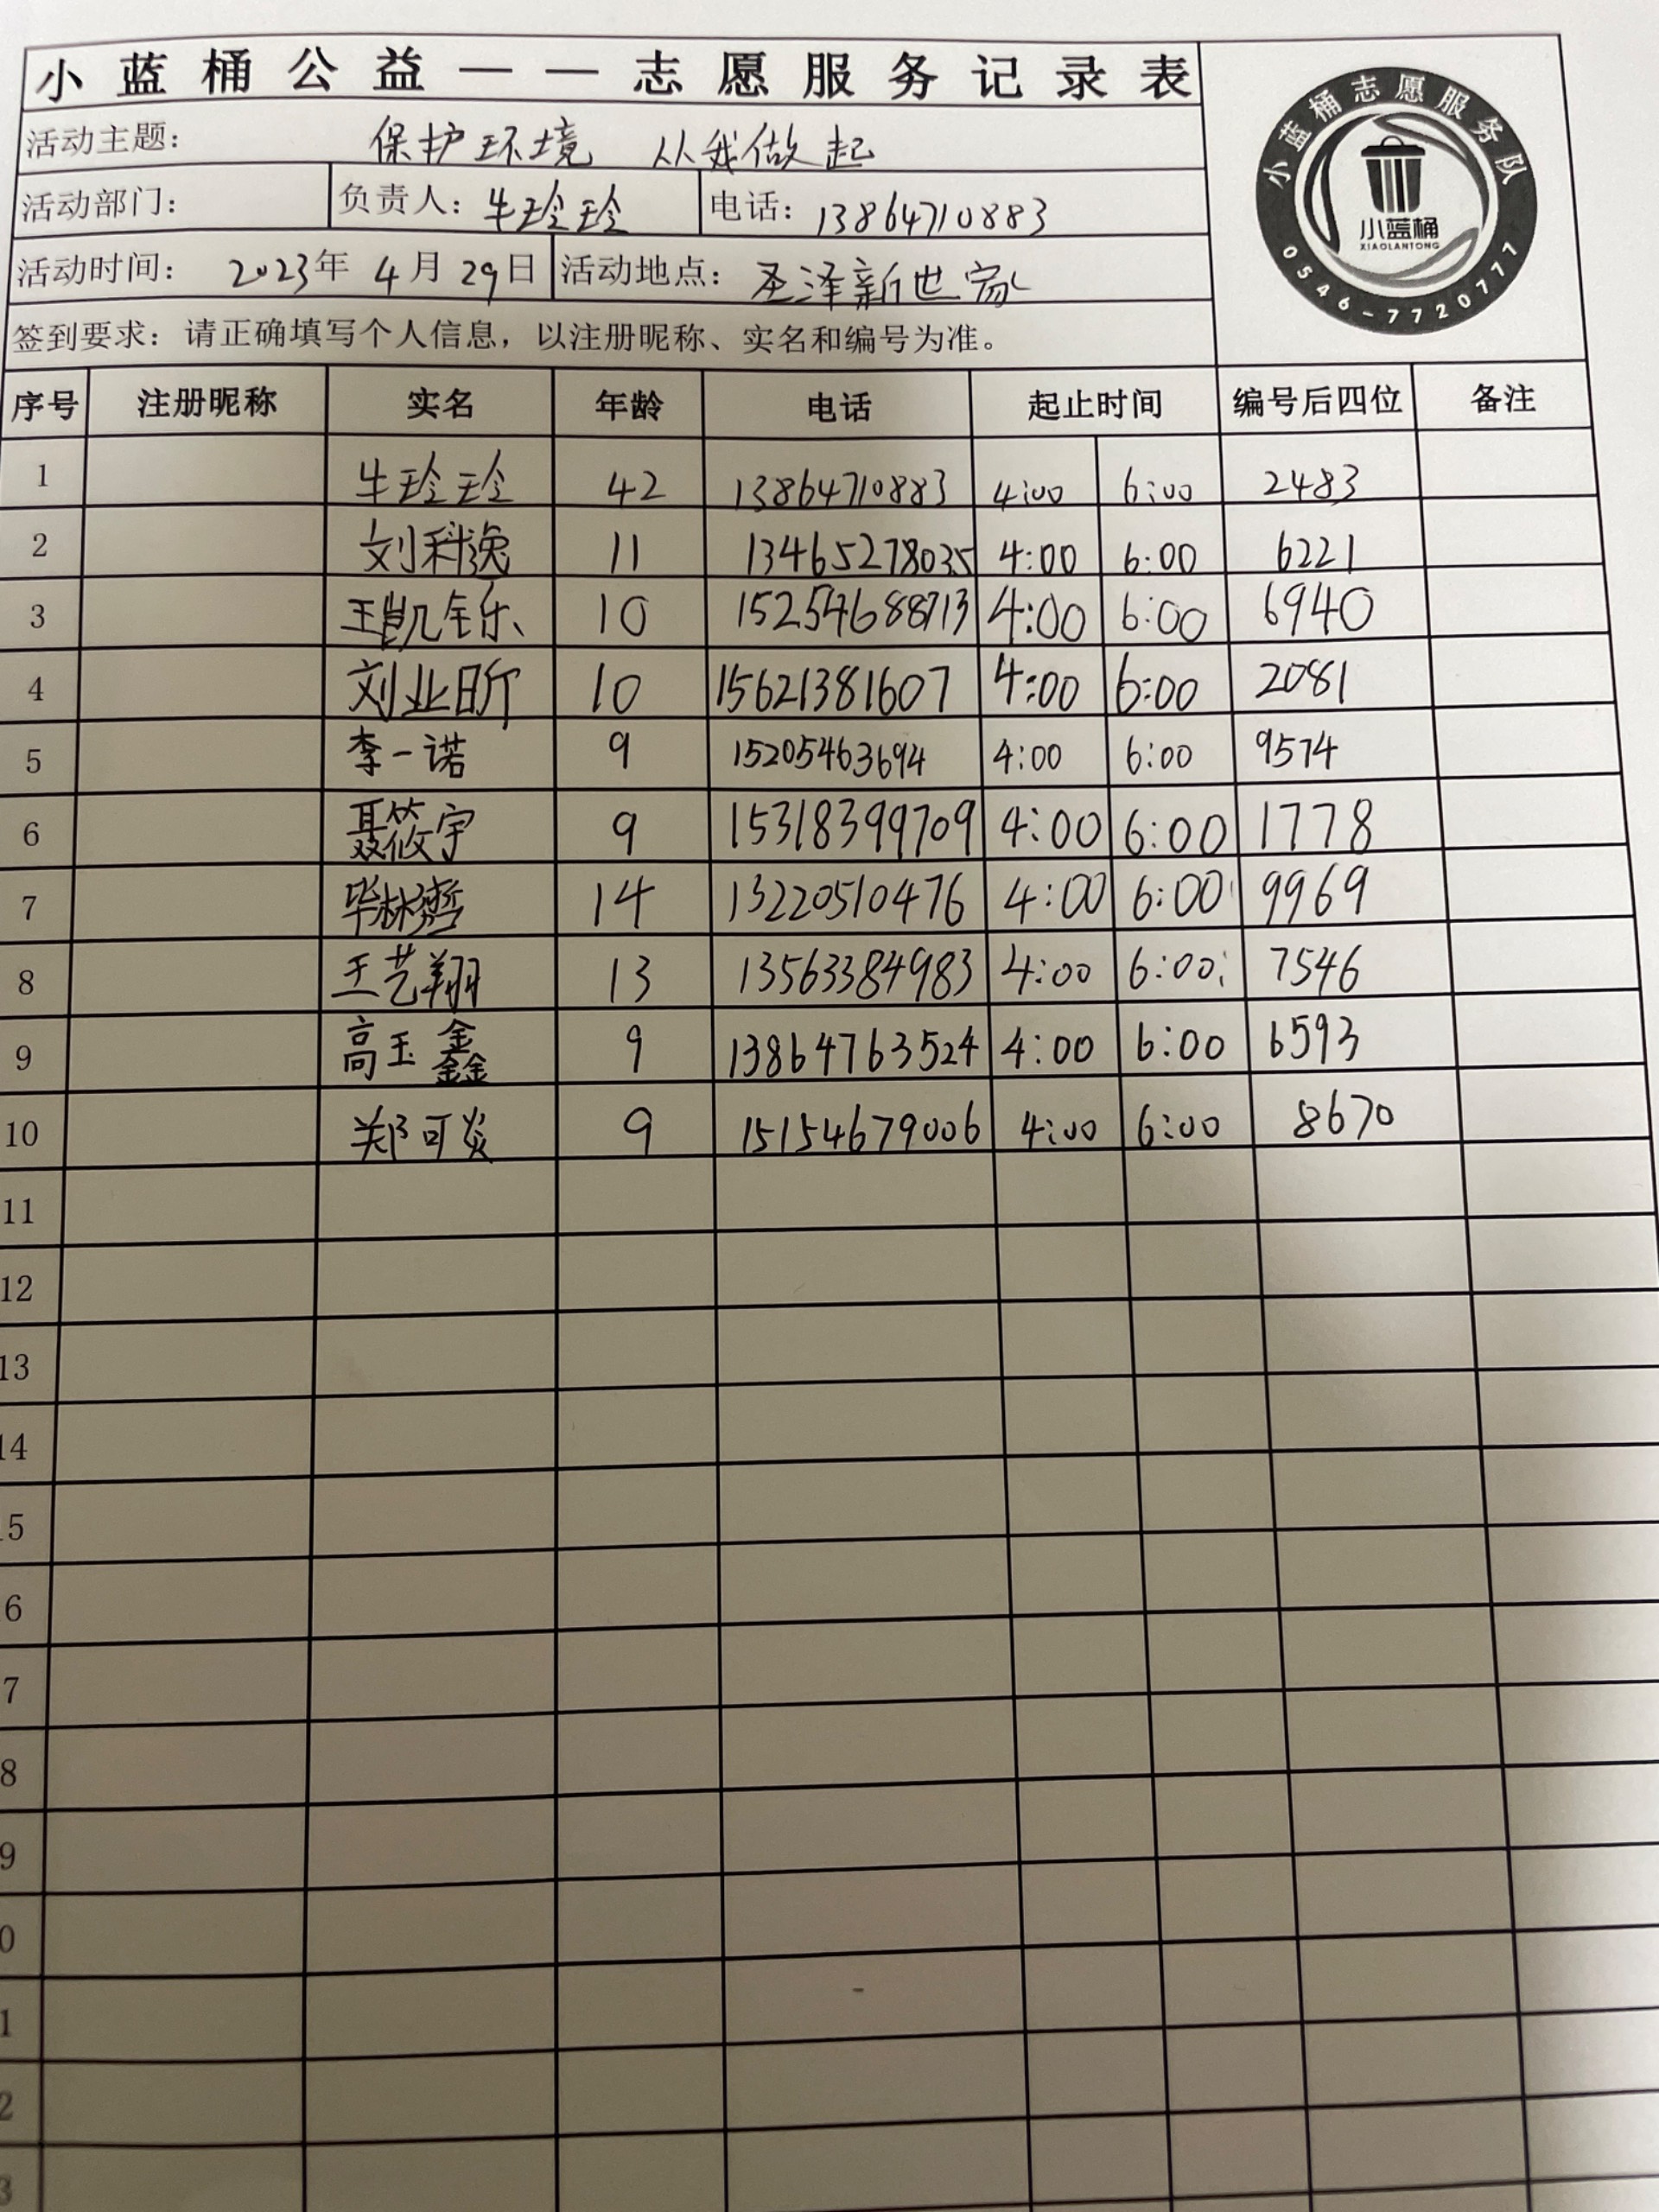 小蓝桶公益——志愿服务记录表
小蓝桶志愿服务队
小蓝桶
XIAOLANTONG
0546-7720777
活动主题: 保护环境 从我做起
活动部门: 负责人: 牛玲玲 电话: 13864710883
活动时间: 2023年 4月 29日 活动地点: 圣泽新世家
签到要求: 请正确填写个人信息，以注册昵称、实名和编号为准。
序号 注册昵称 实名 年龄 电话 起止时间 编号后四位 备注
1 牛玲玲 42 13864710883 4:00 6:00 2483
2 刘科逸 11 13465278035 4:00 6:00 6221
3 王凯钰乐 10 15254688713 4:00 6:00 6940
4 刘业昕 10 15621381607 4:00 6:00 2081
5 李一诺 9 15205463694 4:00 6:00 9574
6 聂筱宇 9 15318399709 4:00 6:00 1778
7 毕林 14 13220510476 4:00 6:00 9969
8 王艺翔 13 13563384983 4:00 6:00 7546
9 高玉鑫 9 13864763524 4:00 6:00 6593
10 郑可炎 9 15154679006 4:00 6:00 8670
11
12
13
14
15
6
7
8
9
0
1
2
3